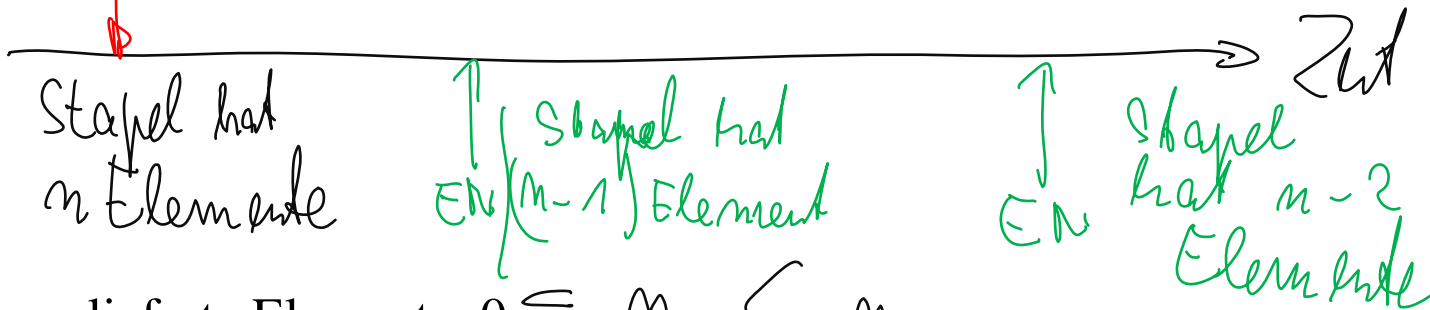 Zeit
Stapel hat
n Elemente
EN
Stapel hat
(n-1) Element
EN
Stapel
hat n-2
Elemente